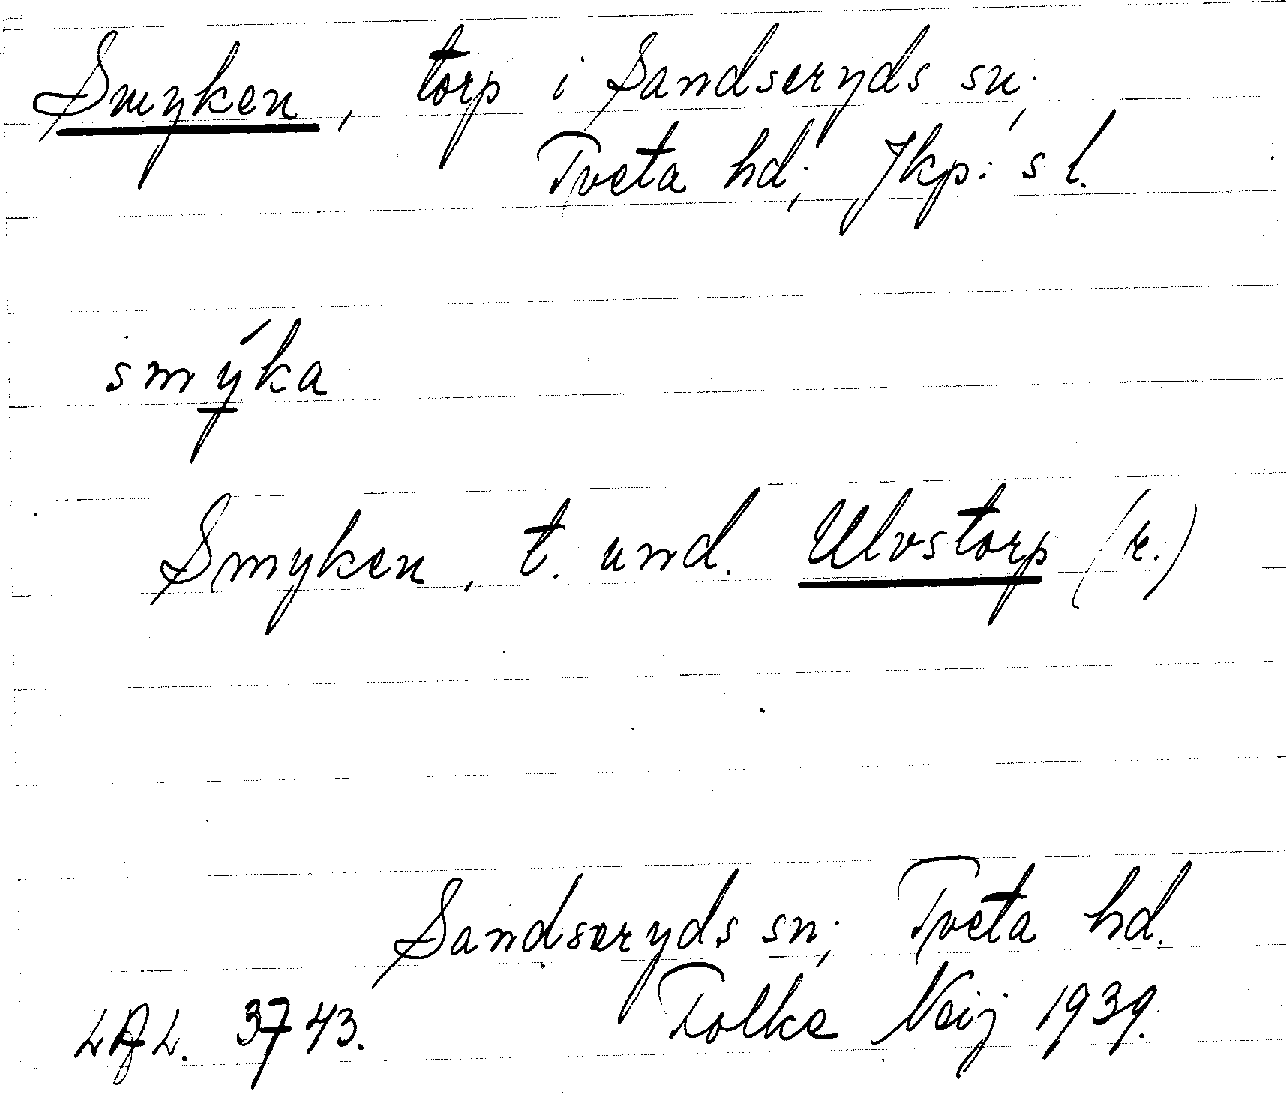 Smyken, torp i Sandseryds sn;
Tveta hd; Jkp: s l.
smýka
Smyken, t. und. Ulvstorp (r.)
Sandseryds sn; Tveta hd.
3743. Folke Neij 1939.